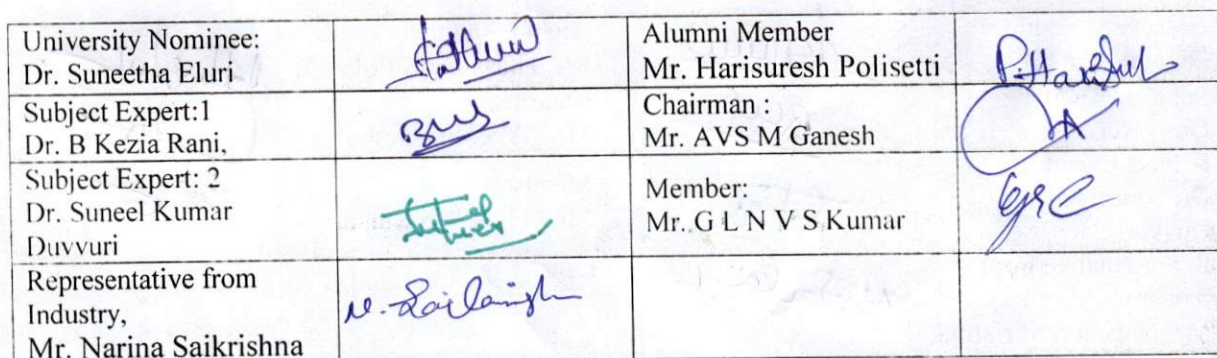 University Nominee:
Dr. Suneetha Eluri
Alumni Member
Mr. Harisuresh Polisetti
P. Harisu
Subject Expert:1
Dr. B Kezia Rani,
Chairman :
Mr. AVS M Ganesh
Subject Expert: 2
Dr. Suneel Kumar
Duvvuri
Member:
Mr. G L N V S Kumar
Representative from
Industry,
Mr. Narina Saikrishna